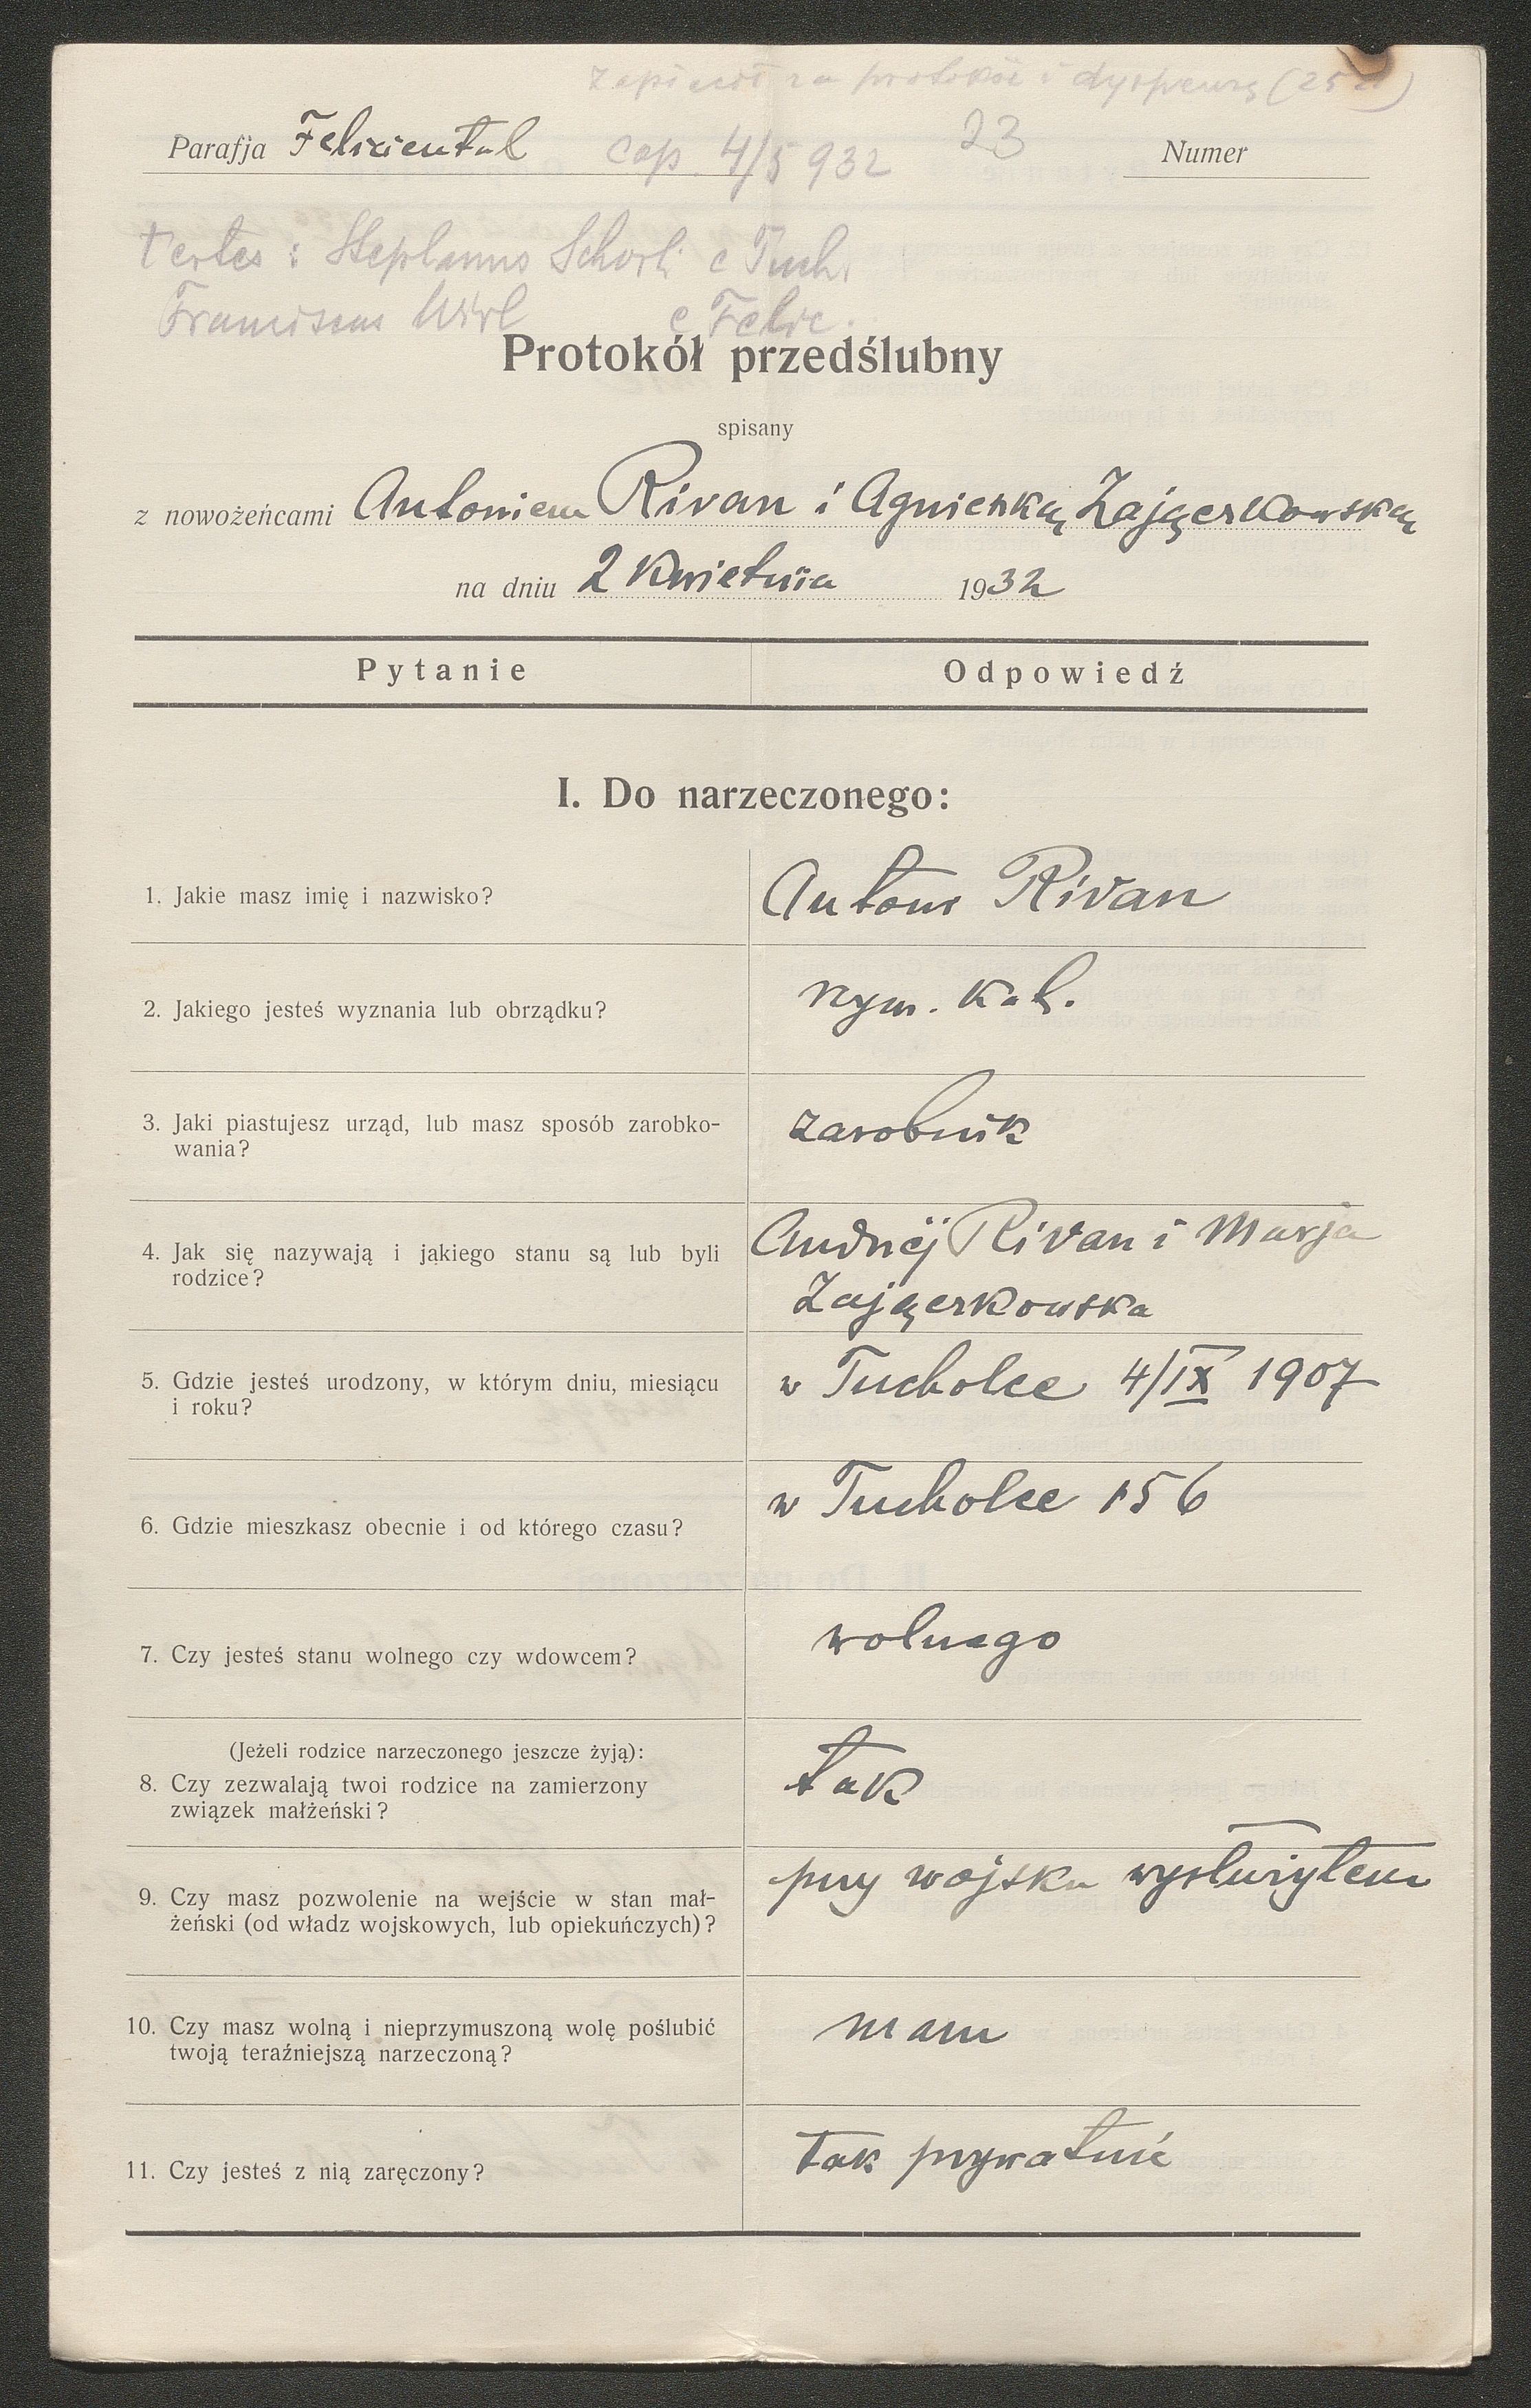 Zapłacił za protokół i dyspensę (25 zł)
Parafja Feliziental cop. 4/5 932 23 Numer
Testes: Stephanus Schorli e Tuch.
Franciscus Wirl e Felic.
Protokół przedślubny
spisany
z nowożeńcami Antoniem Rivan i Agnieszką Zajączkowską
na dniu 2 Kwietnia 1932
Pytanie Odpowiedź
I. Do narzeczonego:
1. Jakie masz imię i nazwisko? Antoni Rivan
2. Jakiego jesteś wyznania lub obrządku? rzym. kat.
3. Jaki piastujesz urząd, lub masz sposób zarobko-
wania?
zarobnik
4. Jak się nazywają i jakiego stanu są lub byli
rodzice?
Andrzej Rivan i Marja
Zajączkowska
5. Gdzie jesteś urodzony, w którym dniu, miesiącu
i roku?
w Tucholce 4/IX 1907
6. Gdzie mieszkasz obecnie i od którego czasu?
w Tucholce 156
7. Czy jesteś stanu wolnego czy wdowcem? wolnego
(Jeżeli rodzice narzeczonego jeszcze żyją):
8. Czy zezwalają twoi rodzice na zamierzony
związek małżeński?
tak
9. Czy masz pozwolenie na wejście w stan mał-
żeński (od władz wojskowych, lub opiekuńczych)?
przy wojsku wysłużyłem
10. Czy masz wolną i nieprzymuszoną wolę poślubić
twoją teraźniejszą narzeczoną?
mam
11. Czy jesteś z nią zaręczony? tak prywatnie